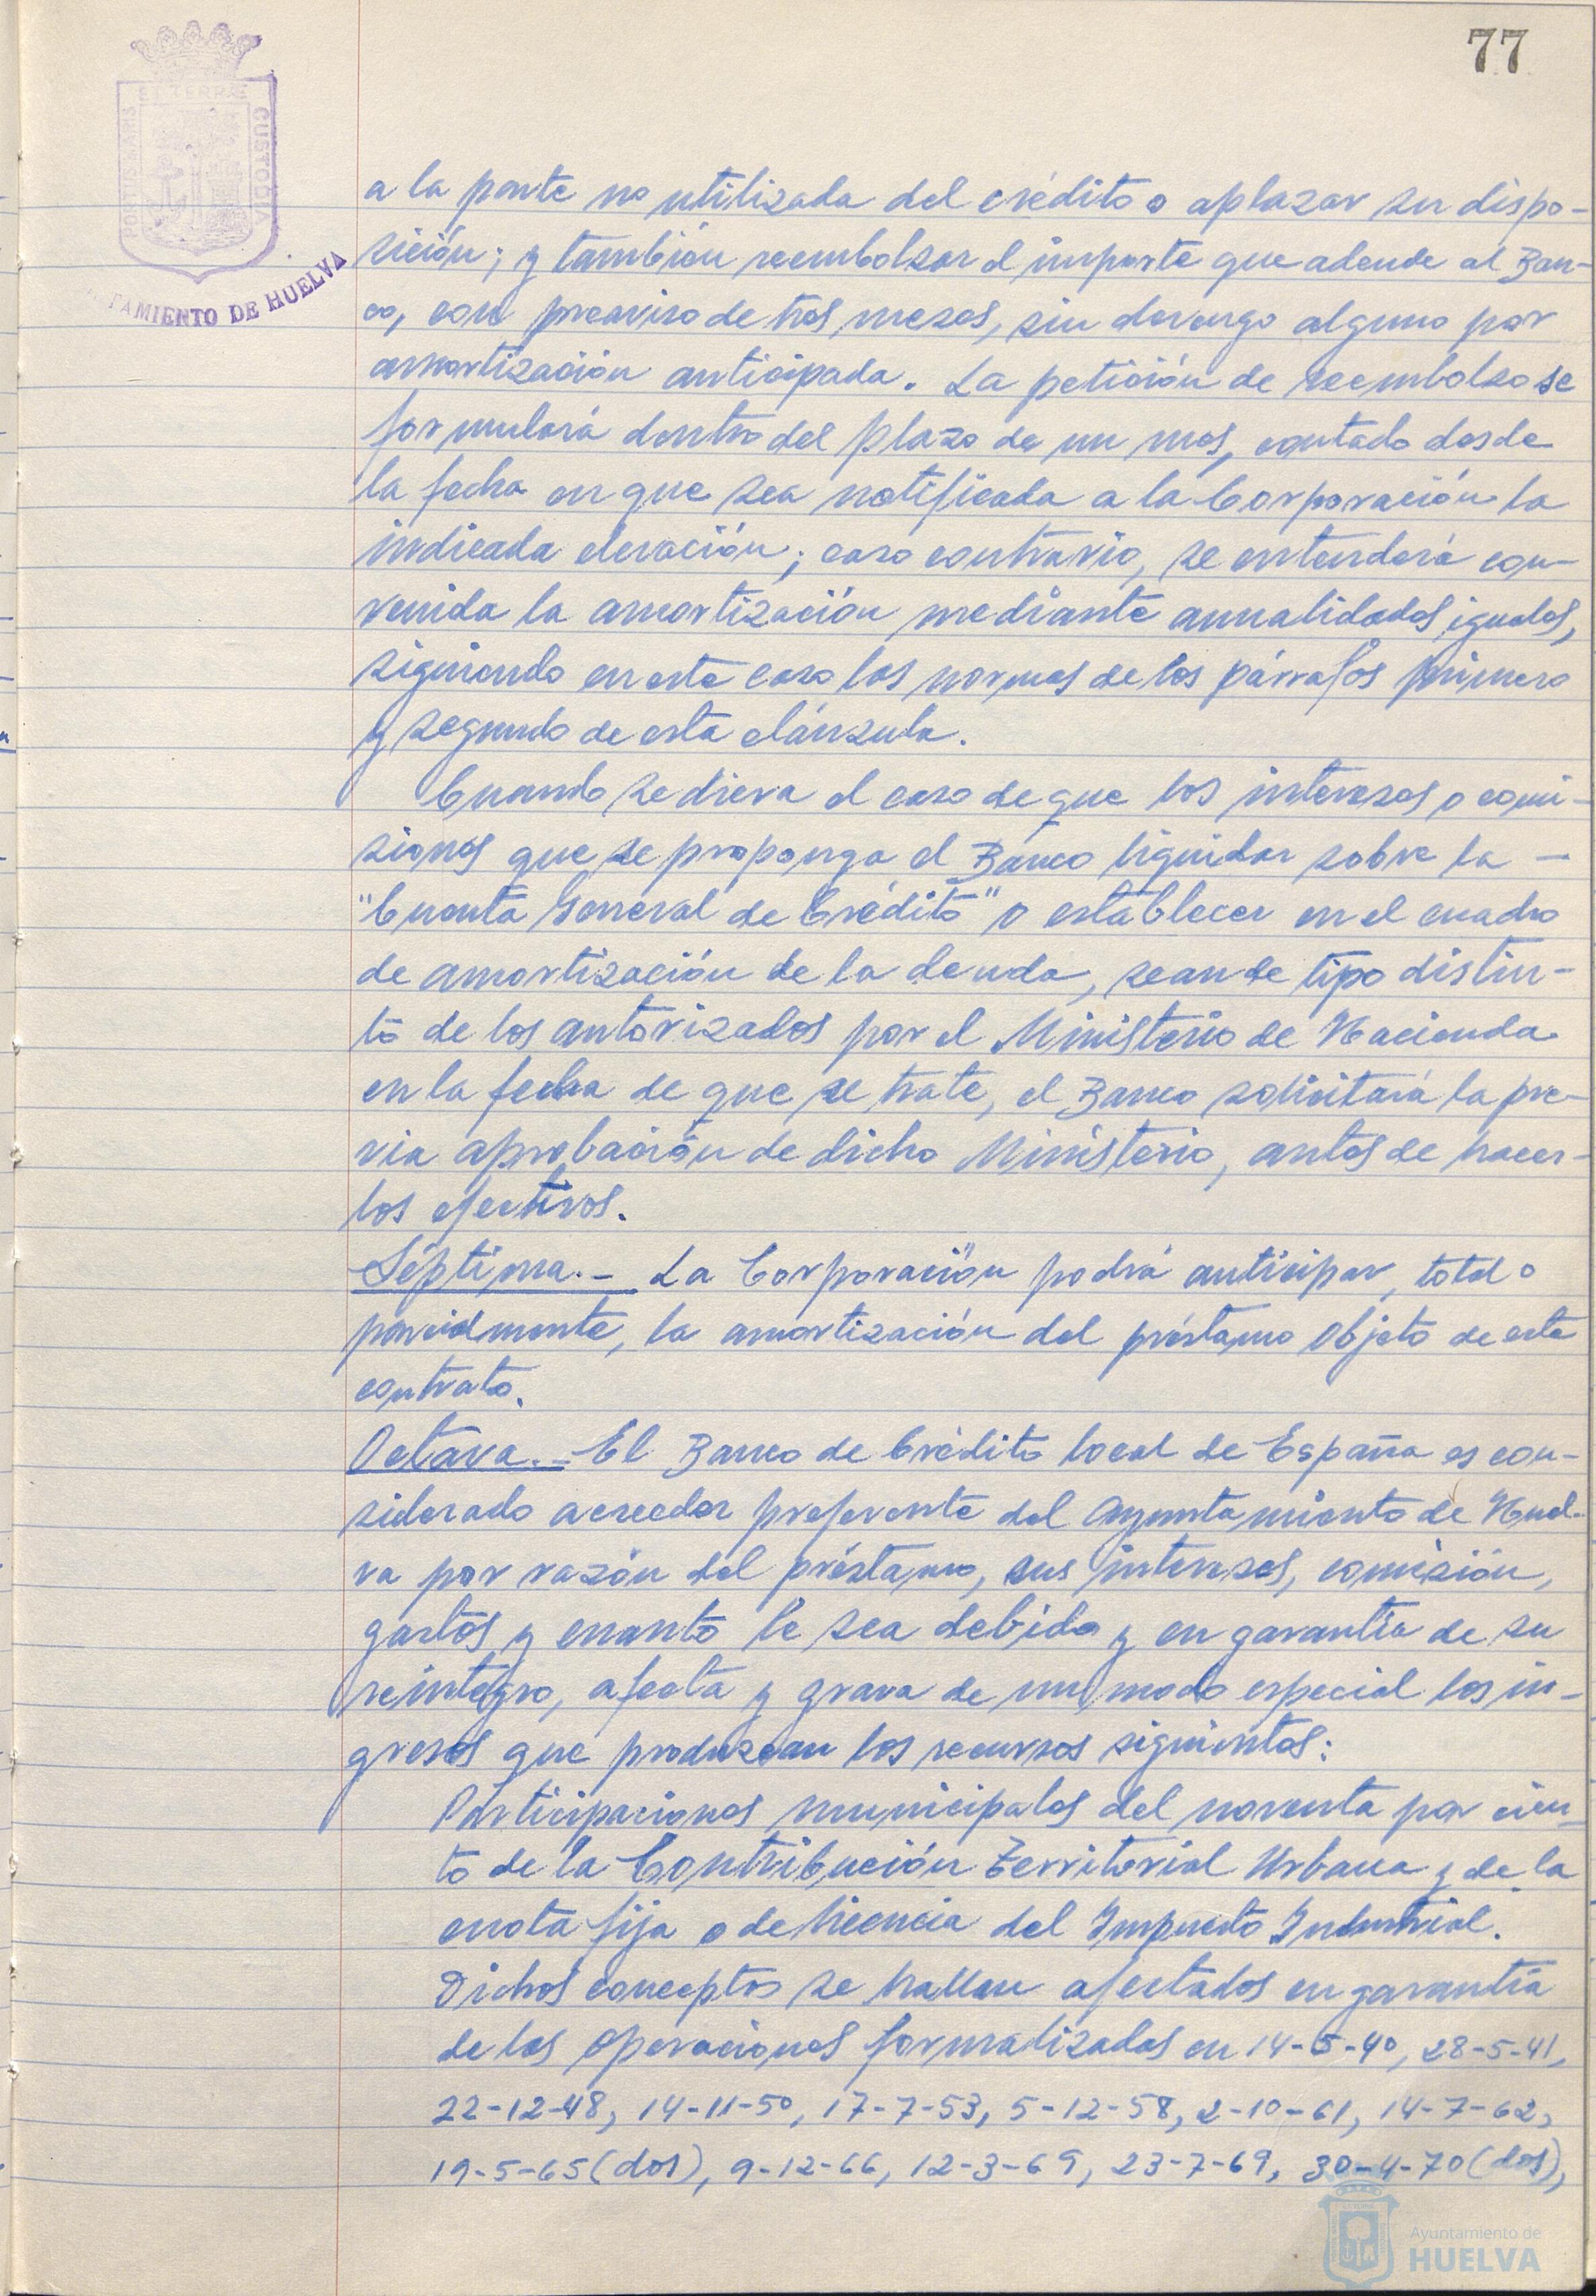 77
PORTUS MARIS
ET TERRÆ
CUSTODIA
TAMIENTO DE HUELVA
a la parte no utilizada del crédito o aplazar su dispo-
sición; y también reembolsar el importe que adeude al Ban-
co, con preaviso de tres meses, sin devengo alguno por
amortización anticipada. La petición de reembolso se
formulará dentro del plazo de un mes, contado desde
la fecha en que sea notificada a la Corporación la
indicada elevación; caso contrario, se entenderá con-
venida la amortización mediante anualidades iguales,
siguiendo en este caso las normas de los párrafos primero
y segundo de esta cláusula.
Cuando se diera el caso de que los intereses o comi-
siones que se proponga el Banco liquidar sobre la —
"Cuenta General de Crédito" o establecer en el cuadro
de amortización de la deuda, sean de tipo distin-
to de los autorizados por el Ministerio de Hacienda
en la fecha de que se trate, el Banco solicitará la pre-
via aprobación de dicho Ministerio, antes de hacer-
los efectivos.
Séptima.- La Corporación podrá anticipar, total o
parcialmente, la amortización del préstamo objeto de este
contrato.
Octava.- El Banco de Crédito Local de España es con-
siderado acreedor preferente del Ayuntamiento de Huel-
va por razón del préstamo, sus intereses, comisión,
gastos y cuanto le sea debido y en garantía de su
reintegro, afecta y grava de un modo especial los in-
gresos que produzcan los recursos siguientes:
Participaciones municipales del noventa por cien-
to de la Contribución Territorial Urbana y de la
cuota fija o de licencia del Impuesto Industrial.
Dichos conceptos se hallan afectados en garantía
de las operaciones formalizadas en 14-5-40, 28-5-41,
22-12-48, 14-11-50, 17-7-53, 5-12-58, 2-10-61, 14-7-62,
19-5-65 (dos), 9-12-66, 12-3-69, 23-7-69, 30-4-70 (dos),
Ayuntamiento de
HUELVA